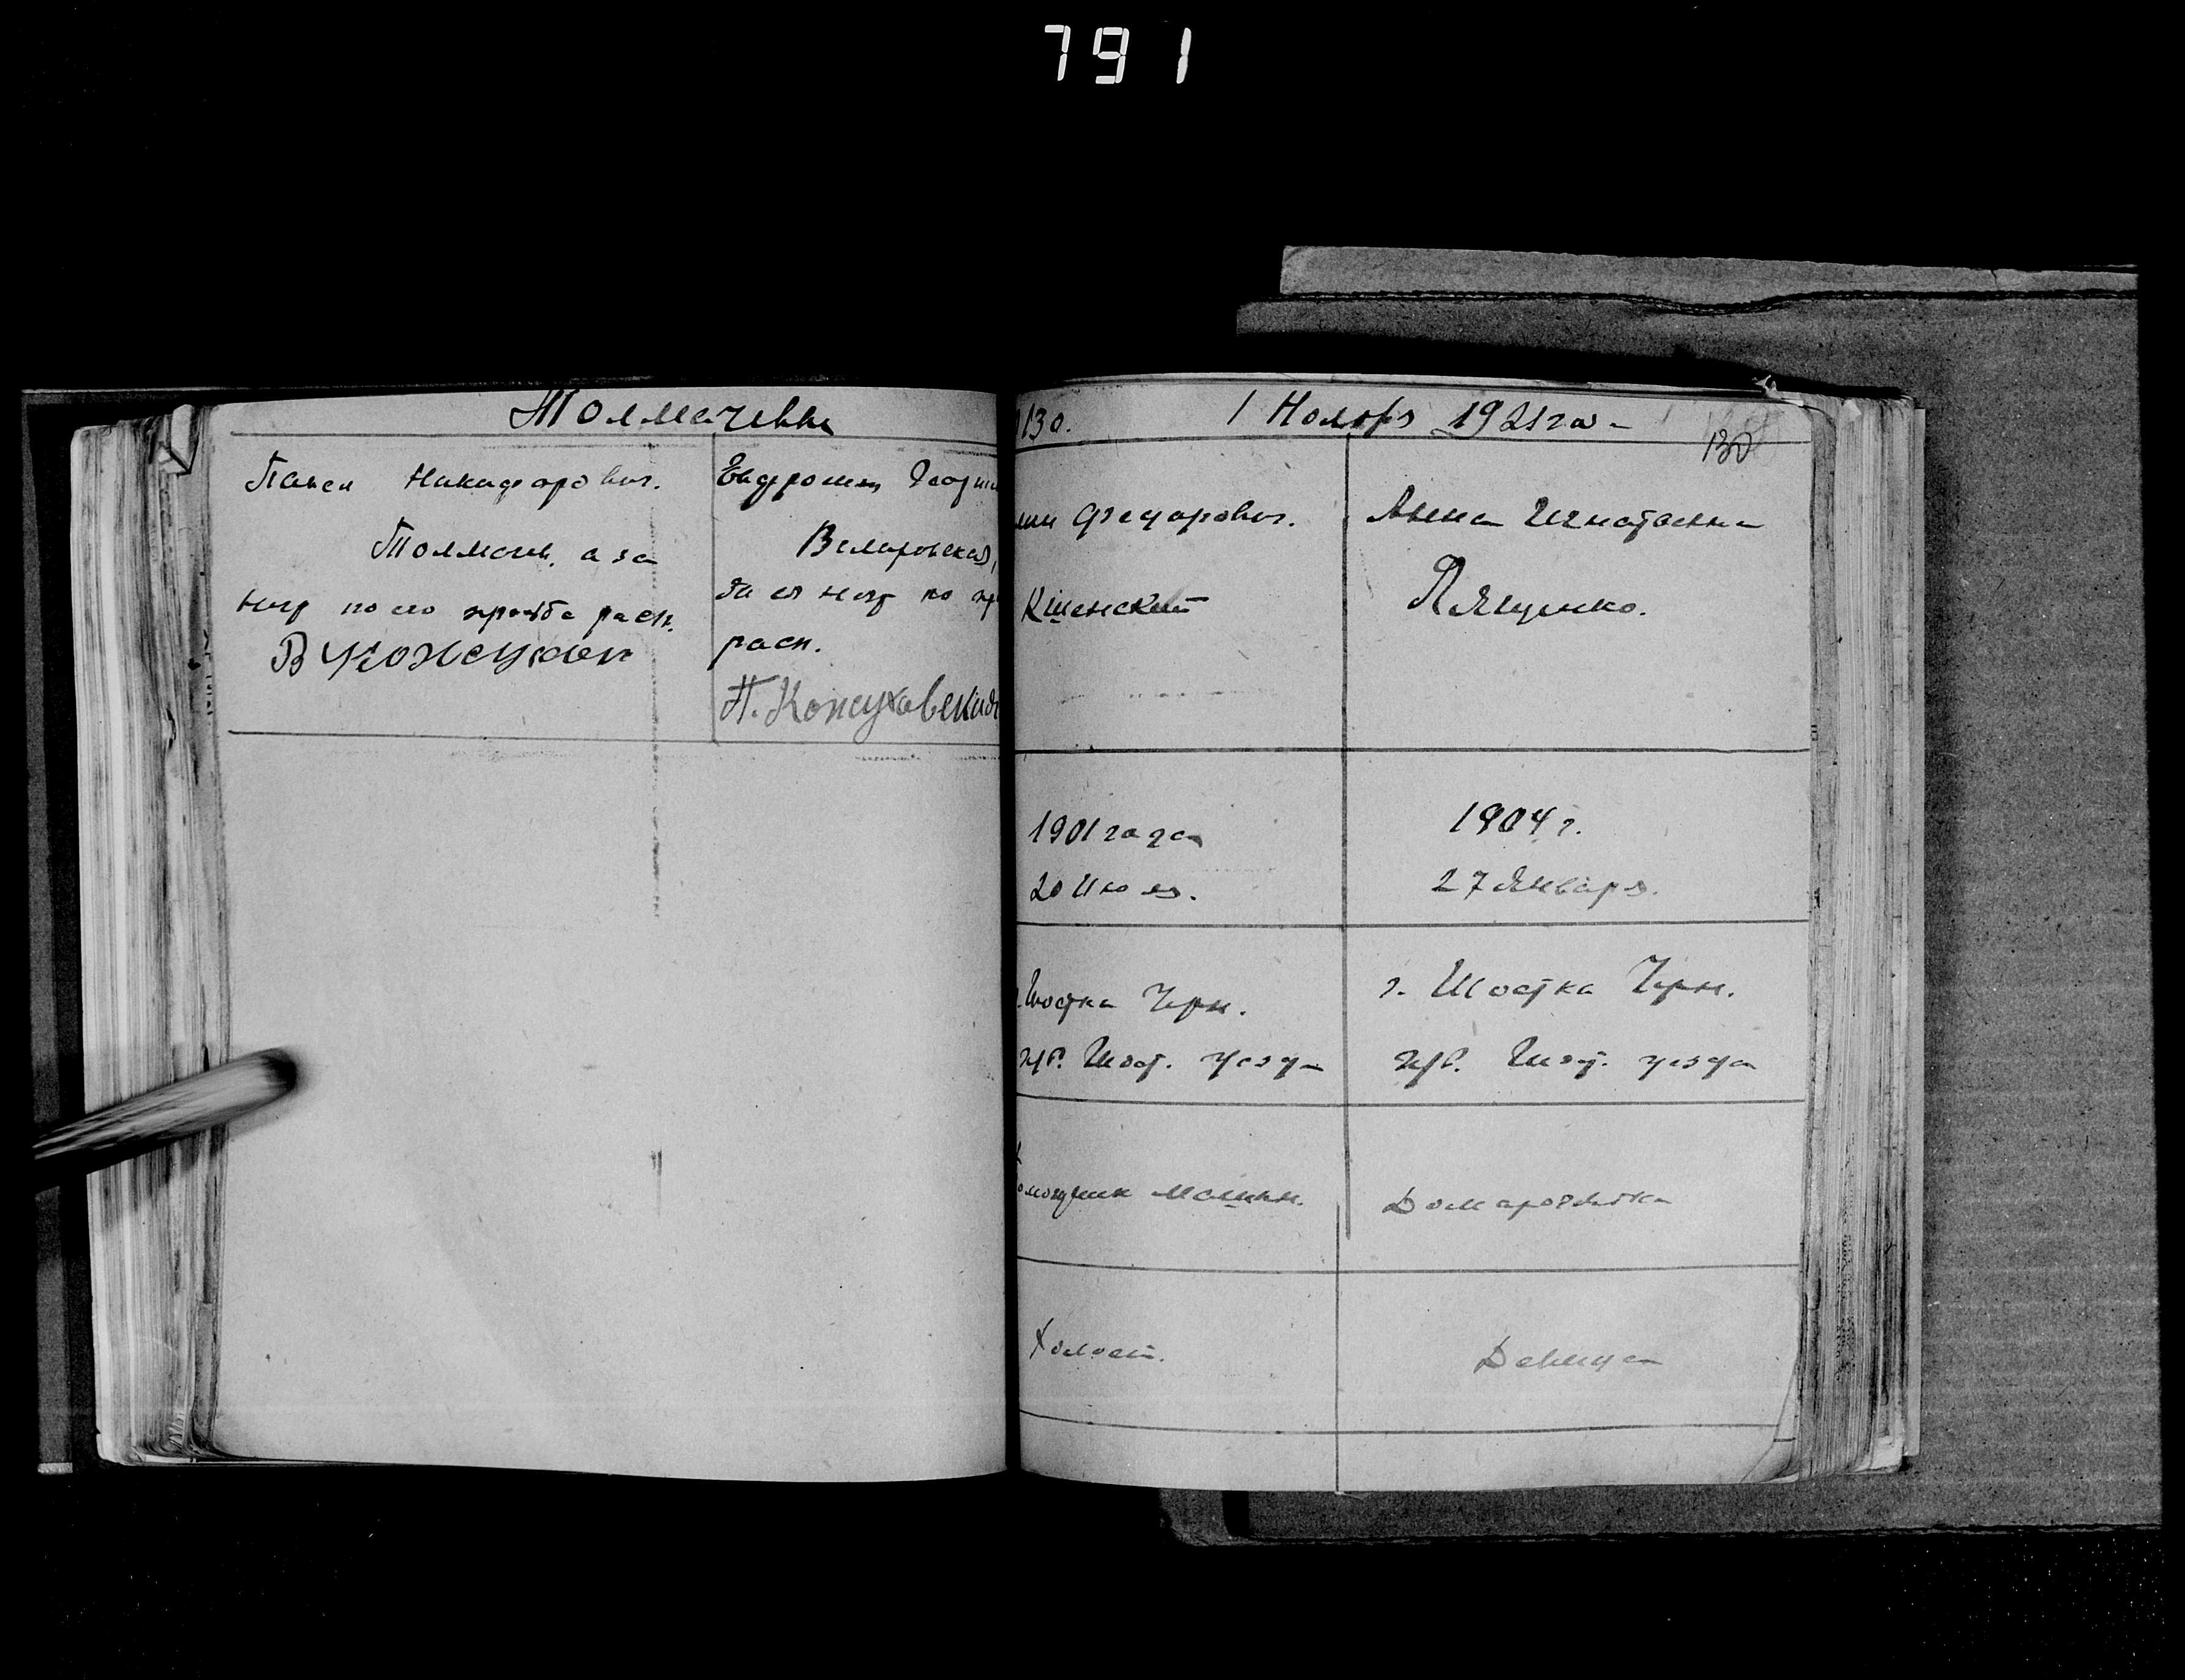 791
Толмачевы
Павел Никифорович.
Толмачев, а за
него по его просьбе расп.
В Кожухов
Евдрошен Георги
за ея негр по пр
расп.
П. Кожуховский
130.
1 Ноября 1921 го-
130
Федорович.
Кшенский
Анна Игнатьевна
Лященко.
1901 года
20 Июля.
1904 г.
27 Января.
Шостка Черн.
губ. Шост. уезда
г. Шостка Черн.
губ. Шост. уезда
омощник машин.
Домаработка
Холост.
Девица